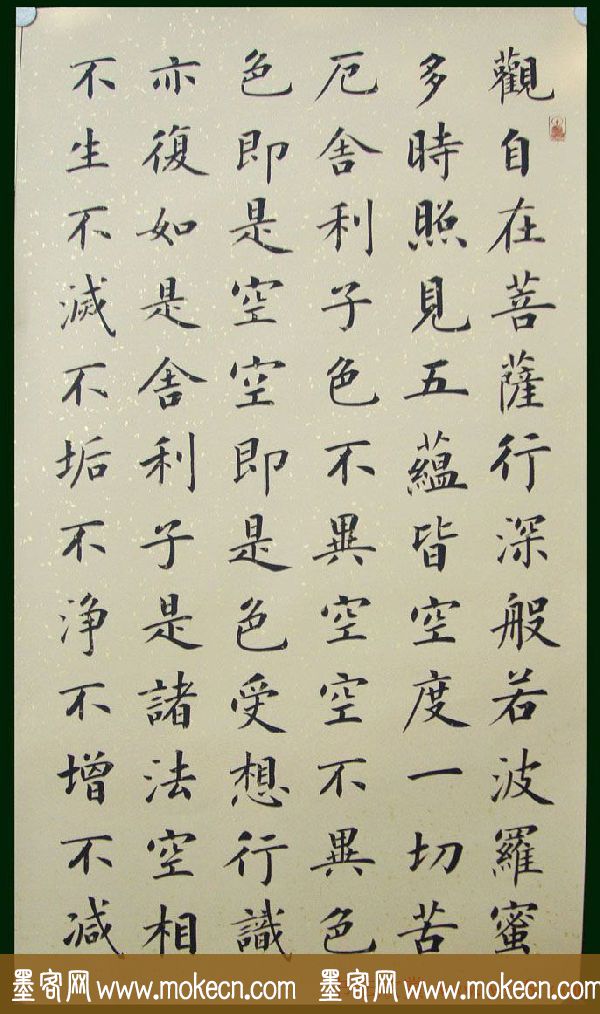 觀自在菩薩行深般若波羅蜜
多時照見五蘊皆空度一切苦
厄舍利子色不異空空不異色
色即是空空即是色受想行識
亦復如是舍利子是諸法空相
不生不滅不垢不淨不增不減
墨客网 www.mokecn.com 墨客网 www.mokecn.com